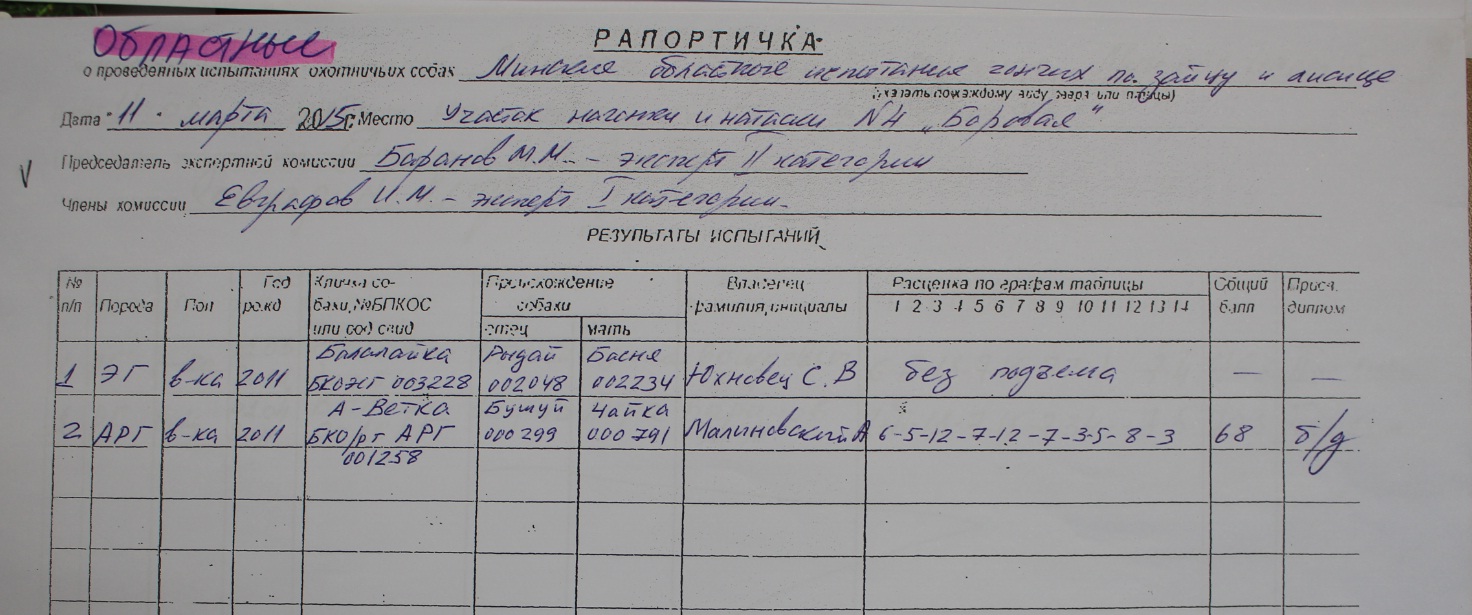 Областные
РАПОРТИЧКА
о проведенных испытаниях охотничьих собак Минские областные испытания гончих по зайцу и лисице
(указать по каждому виду зверя или птицы)
Дата 11 марта 2015г. Место Участок нагонки и натаски N4 „Боровая"
Председатель экспертной комиссии Баранов М.М. – эксперт II категории
V
Члены комиссии Евграфов И.М. – эксперт I категории
РЕЗУЛЬТАТЫ ИСПЫТАНИЙ
№ п/п Порода Пол Год рожд Кличка собаки, №БПКОС или род свид Происхождение собаки отец мать Владелец фамилия, инициалы Расценка по графам таблицы 1 2 3 4 5 6 7 8 9 10 11 12 13 14 Общий балл Прис. диплом
1 ЭГ в-ка 2011 Балалайка БКОЭГ 003228 Рыдай 002048 Басня 002234 Юхновец С.В без подъема — —
2 АРГ в-ка 2011 А-Ветка БКО/рг АРГ 001258 Бушуй 000299 Чайка 000791 Малиновский А 6-5-12-7-12-7-3-5-8-3 68 б/д